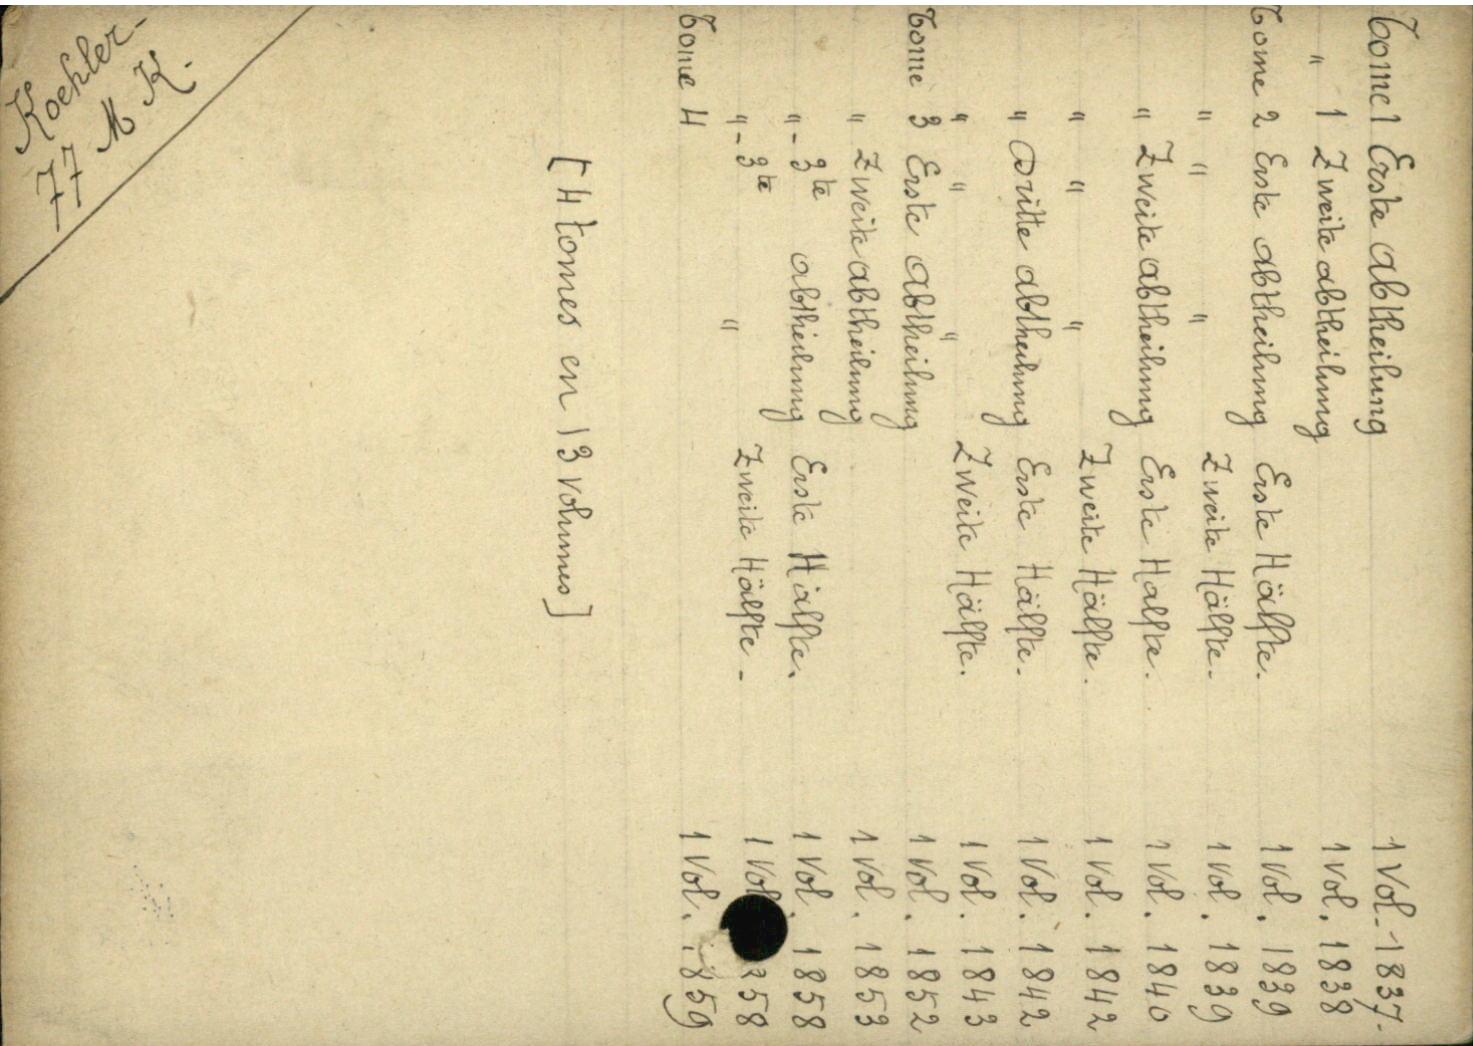 Tome 1 Erste Abtheilung 1 Vol. 1837.
" 1 Zweite abtheilung 1 vol. 1838
Tome 2 Erste Abtheilung Erste Hälfte. 1 Vol. 1839
" " " Zweite Hälfte. 1 Vol. 1839
" Zweite Abtheilung Erste Halfte. 1 Vol. 1840
" " " Zweite Hälfte. 1 Vol. 1842
" Dritte Abtheilung Erste Hälfte. 1 Vol. 1842
" " " Zweite Hälfte. 1 Vol. 1843
Tome 3 Erste Abtheilung 1 Vol. 1852
" Zweite Abtheilung 1 Vol. 1853
" - 3te Abtheilung Erste Hälfte. 1 Vol. 1858
" - 3te " Zweite Hälfte - 1 Vol 858
Tome 4 1 Vol. 1859
[4 tomes en 13 volumes]
Koehler-
77 M. K.